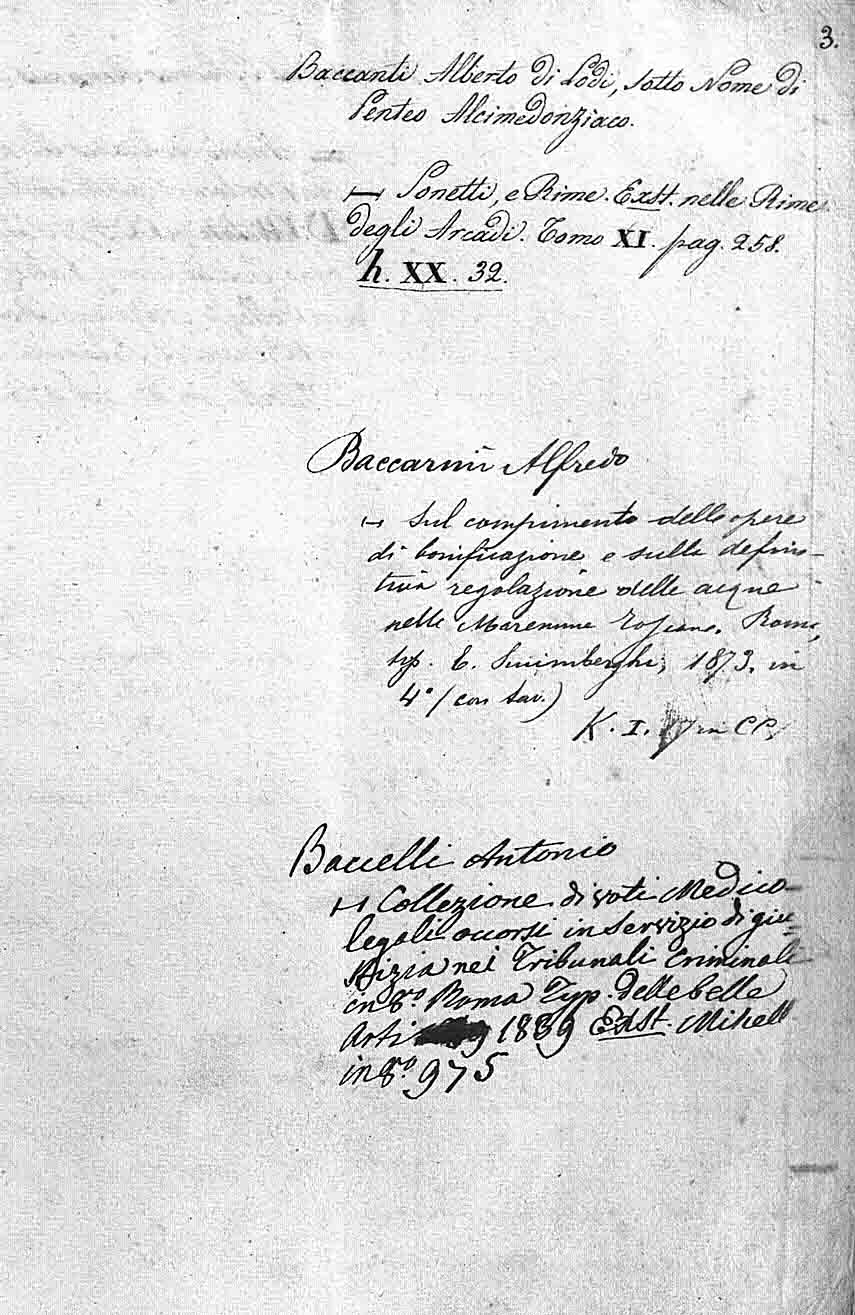 3.
Baccanti Alberto di Lodi, sotto Nome di
Penteo Alcimedonziaco.
Sonetti, e Rime. Exst. nelle Rime
degli Arcadi. Tomo XI. pag. 258.
h. XX. 32.
Baccarini Alfredo
Sul compimento delle opere
di bonificazione e sulla defini-
tiva regolazione delle acque
nelle Maremme Toscane. Roma,
typ. E. Sinimberghi, 1873. in
4° (con tav.)
K. I.
Baccelli Antonio
Collezione di voti Medico-
legali occorsi in servizio di giu=
stizia nei Tribunali Criminali
in 8.º Roma Typ. delle belle
Arti 1839 Exst. Miscell
in 8.º 975